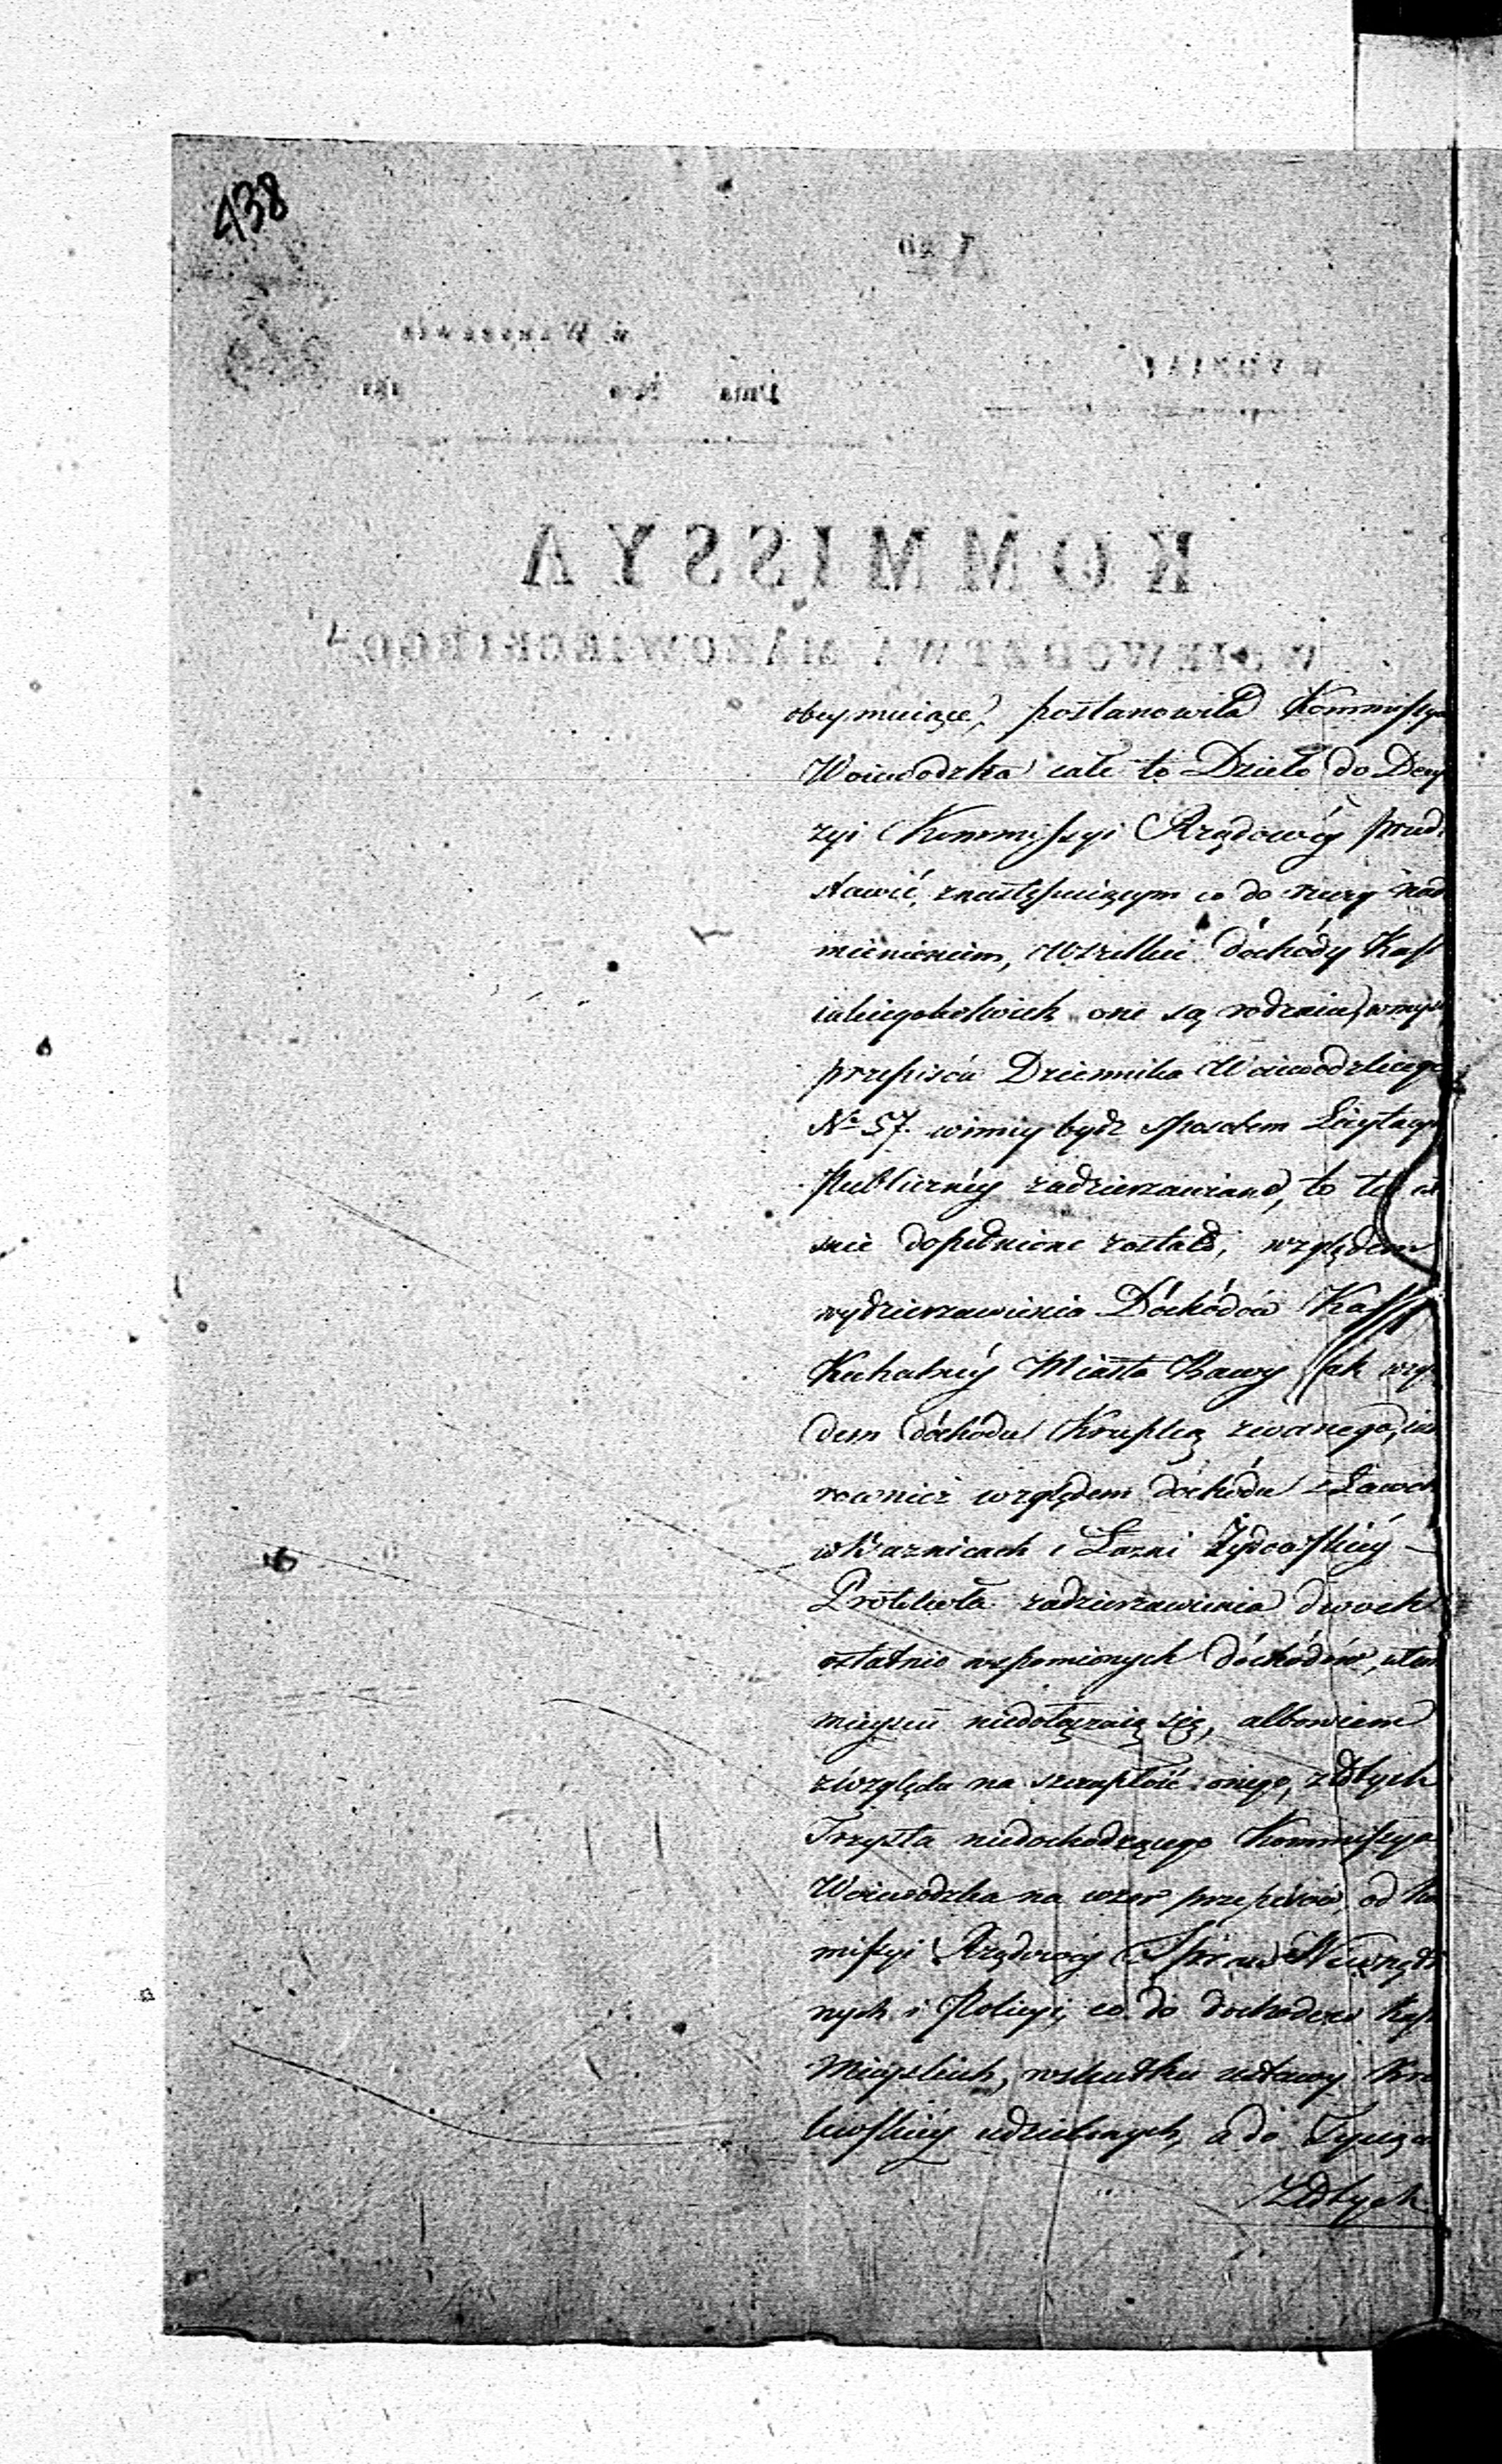 438
obeymuiące, postanowiła Kommissya
Woiewodzka całe to Dzieło do Decy
zyi Kommissyi Rządowéy przed
stawić, znastępuiącym co do rzeczy nad
mienieniem, Wszelkie dochody Kass
iakiegokolwiek one są rodzaiu, wmysl
przepisów Dziennika Woiewodzkiego
No 57. winny bydź sposobem Licytacyi
Publicznéy zadzierzawiane, to też
dopełnione zostało, względem
wydzierzawienia Dochodów Kassy
Kahalnéy Miasta Rawy jak wzglę
dem dochodu Krupką zwanego,
rownież względem dochodu z Ławek
w Bóznicach i Łazni Żydowskiéy –
Protokuła zadzierzawienia dwóch
ostatnio wspomionych dochodów, wtem
mieyscu niedołączaią się, albowiem
zwzględu na szczupłość onego, złotych
Trzysta niedochodzącego Kommissya
Woiewodzka na wzór przepisów, od Kom
missyi Rządowéy Spraw Wewnętrz
nych i Policyi, co do dochodów Kass
Mieyskich, wskutku ustawy Kró
lewskiéy udzielonych, a do Tysiąca
Złotych